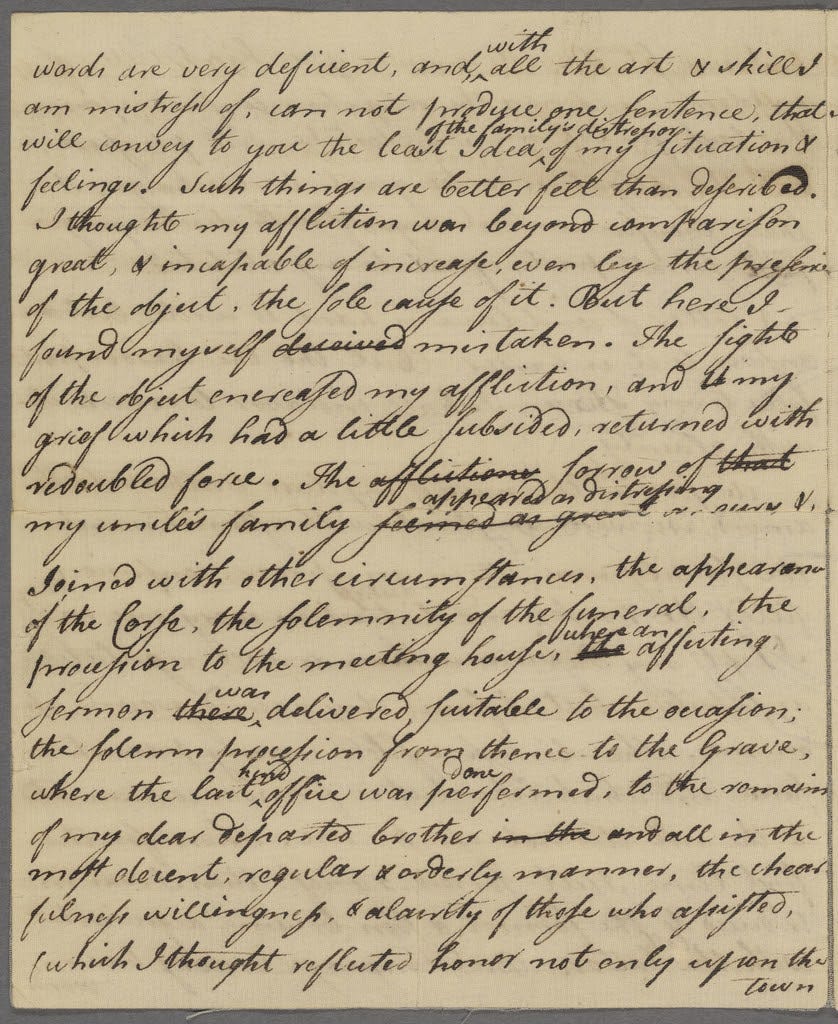 with
words are very deficient, and, ^ all the art & skill I
am mistress of, can not produce one sentence, that
of the family's distress or
will convey to you the least Idea ^ of my situation &
feelings. Such things are better felt than described.
I thought my affliction was beyond comparison
great, & incapable of increase, even by the presence
of the object, the sole cause of it. But here I
found myself deceived mistaken. The sight
of the object encreased my affliction, and my
grief which had a little subsided, returned with
redoubled force. The afflictions sorrow of that
appeared as distressing
my uncle's family seemed as great as ours &.
Joined with other circumstances, the appearance
of the Corse, the solemnity of the funeral, the
where an
procession to the meeting house, the affecting
was
sermon there ^ delivered, suitable to the occasion;
the solemn procession from thence to the Grave,
kind done
where the last ^ office was performed, to the remains
of my dear departed brother in the and all in the
most decent, regular & orderly manner, the chear
fulness willingness, & alacrity of those who assisted,
(which I thought reflected honor not only upon the
town